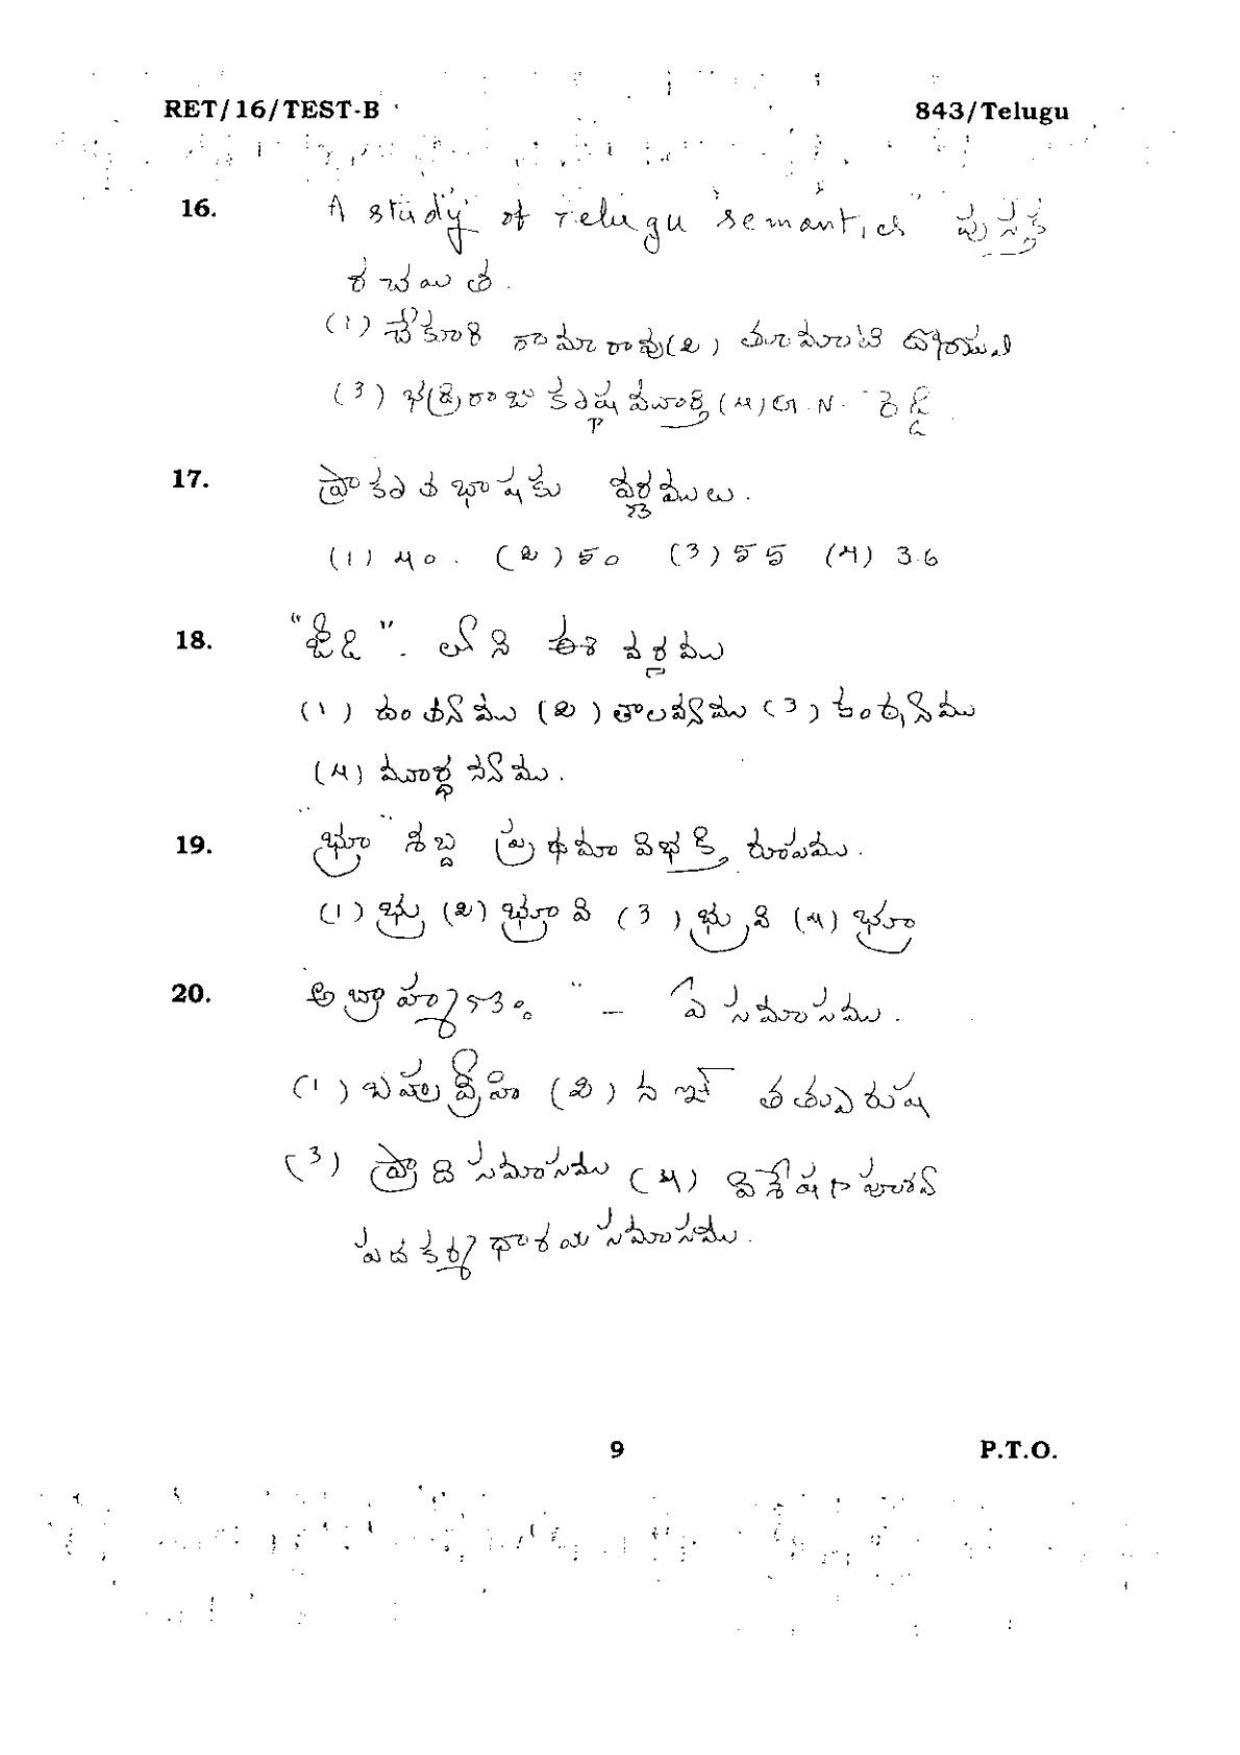 RET/16/TEST-B 843/Telugu
16. "A study of Telugu semantics" పుస్తక
రచయిత.
(1) చేకూరి రామారావు (2) తూమాటి దోణప్ప
(3) భద్రిరాజు కృష్ణమూర్తి (4) G.N. రెడ్డి
17. ప్రాకృత భాషకు వర్ణములు.
(1) 40. (2) 50 (3) 55 (4) 36
18. "జీడి". లోని ఈ వర్ణము
(1) దంత్యము (2) తాలవ్యము (3) కంఠ్యము
(4) మూర్ధన్యము.
19. "భ్రూ" శబ్ద ప్రథమా విభక్తి రూపము.
(1) భ్రు (2) భ్రూవి (3) భ్రువి (4) భ్రూ
20. "అబ్రాహ్మణః" – ఏ సమాసము.
(1) బహువ్రీహి (2) నఞ్ తత్పురుష
(3) ప్రాది సమాసము (4) విశేషణ పూర్వ
పద కర్మధారయ సమాసము.
9 P.T.O.